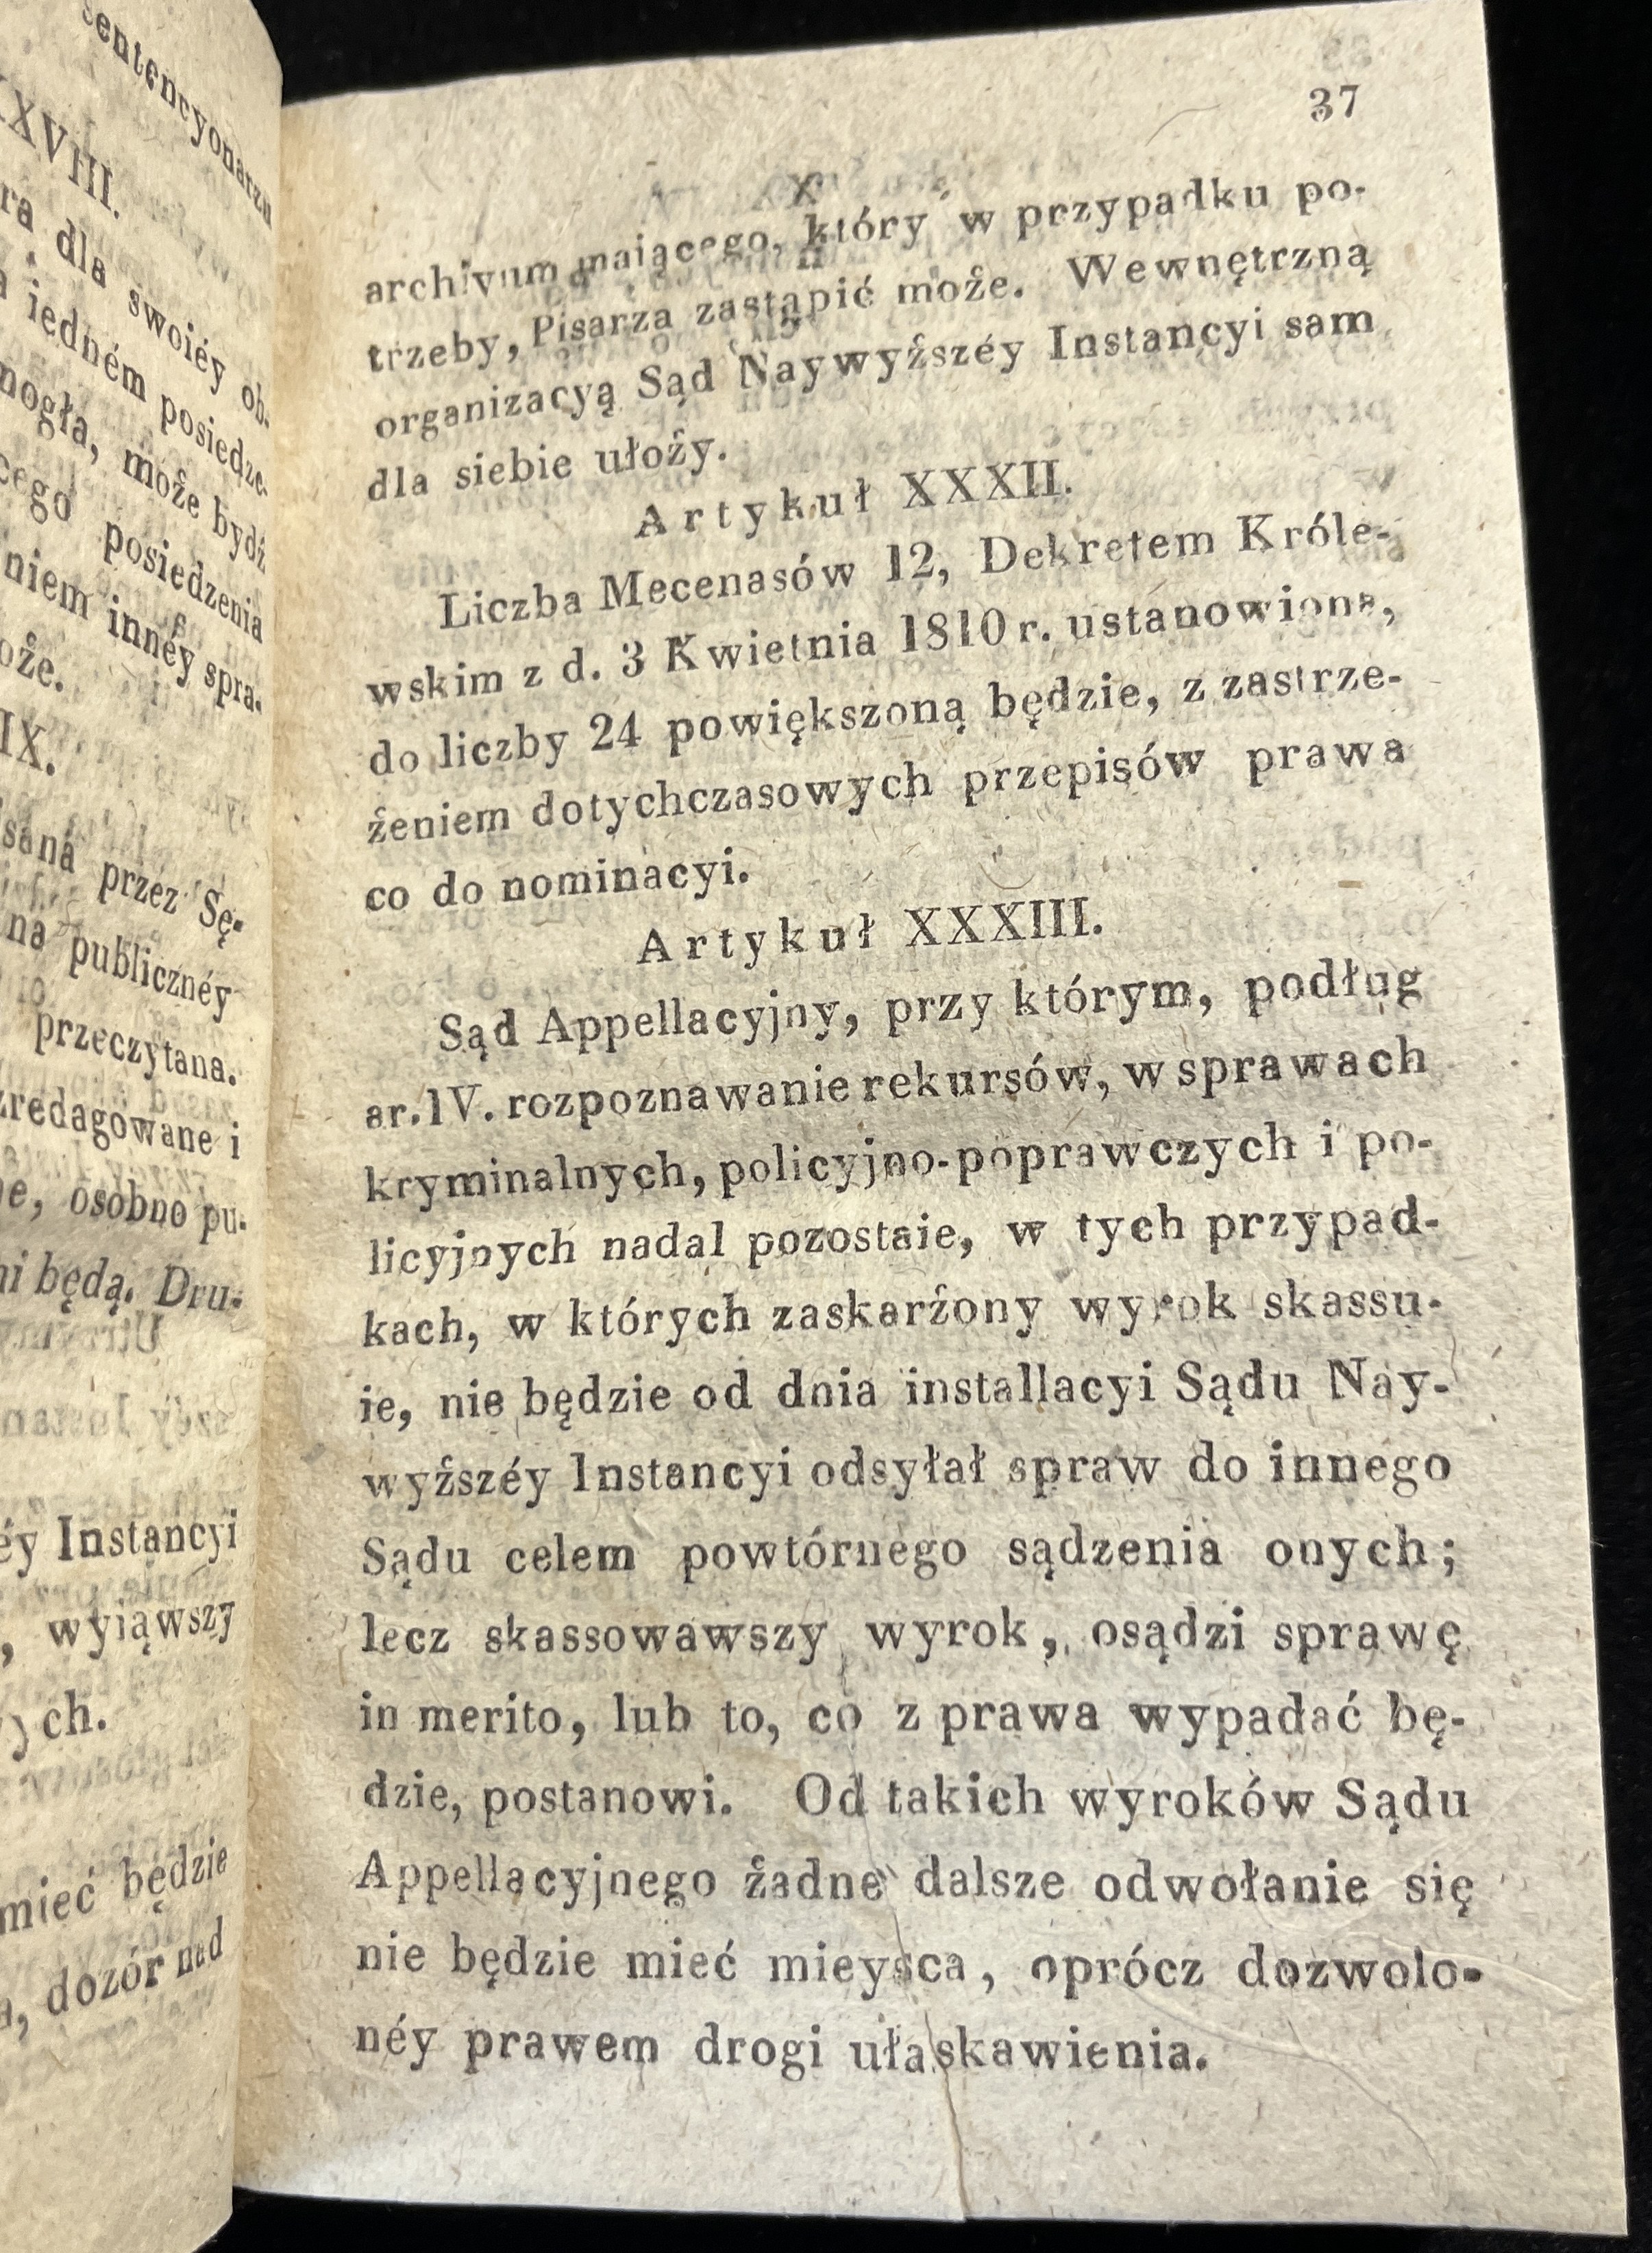 sentencyonarzu
XXVIII.
ra dla swoiéy ob-
iedném posiedze-
mogła, może bydź
cego posiedzenia
niem innéy spra-
oże.
IX.
sana przez Sę-
na publicznéy
przeczytana.
zredagowane i
ne, osobno pu-
ni będą. Dru-
éy Instancyi
, wyiąwszy
ych.
mieć będzie
a, dozór nad
37
archivum maiącego, który w przypadku po-
trzeby, Pisarza zastąpić może. Wewnętrzną
organizacyą Sąd Naywyższéy Instancyi sam
dla siebie ułoży.
Artykuł XXXII.
Liczba Mecenasów 12, Dekretem Króle-
wskim z d. 3 Kwietnia 1810 r. ustanowiona,
do liczby 24 powiększoną będzie, z zastrze-
żeniem dotychczasowych przepisów prawa
co do nominacyi.
Artykuł XXXIII.
Sąd Appellacyjny, przy którym, podług
ar. IV. rozpoznawanie rekursów, w sprawach
kryminalnych, policyjno-poprawczych i po-
licyjnych nadal pozostaie, w tych przypad-
kach, w których zaskarżony wyrok skassu-
ie, nie będzie od dnia installacyi Sądu Nay-
wyższéy Instancyi odsyłał spraw do innego
Sądu celem powtórnego sądzenia onych;
lecz skassowawszy wyrok, osądzi sprawę
in merito, lub to, co z prawa wypadać bę-
dzie, postanowi. Od takich wyroków Sądu
Appellacyjnego żadne dalsze odwołanie się
nie będzie mieć mieysca, oprócz dozwolo-
néy prawem drogi ułaskawienia.